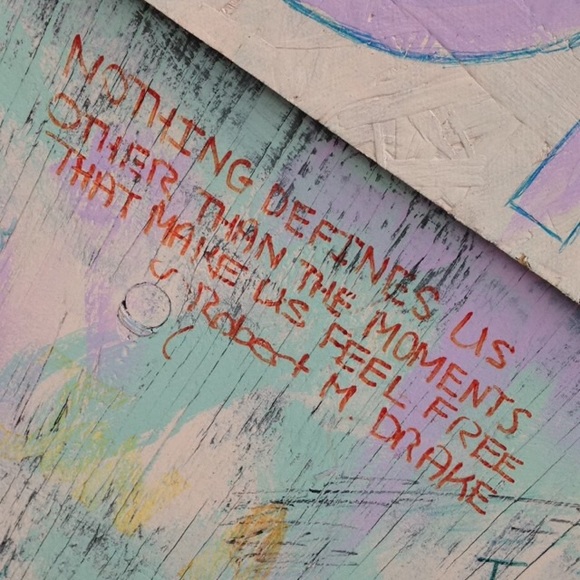 NOTHING DEFINES US
OTHER THAN THE MOMENTS
THAT MAKE US FEEL FREE
Robert M. DRAKE